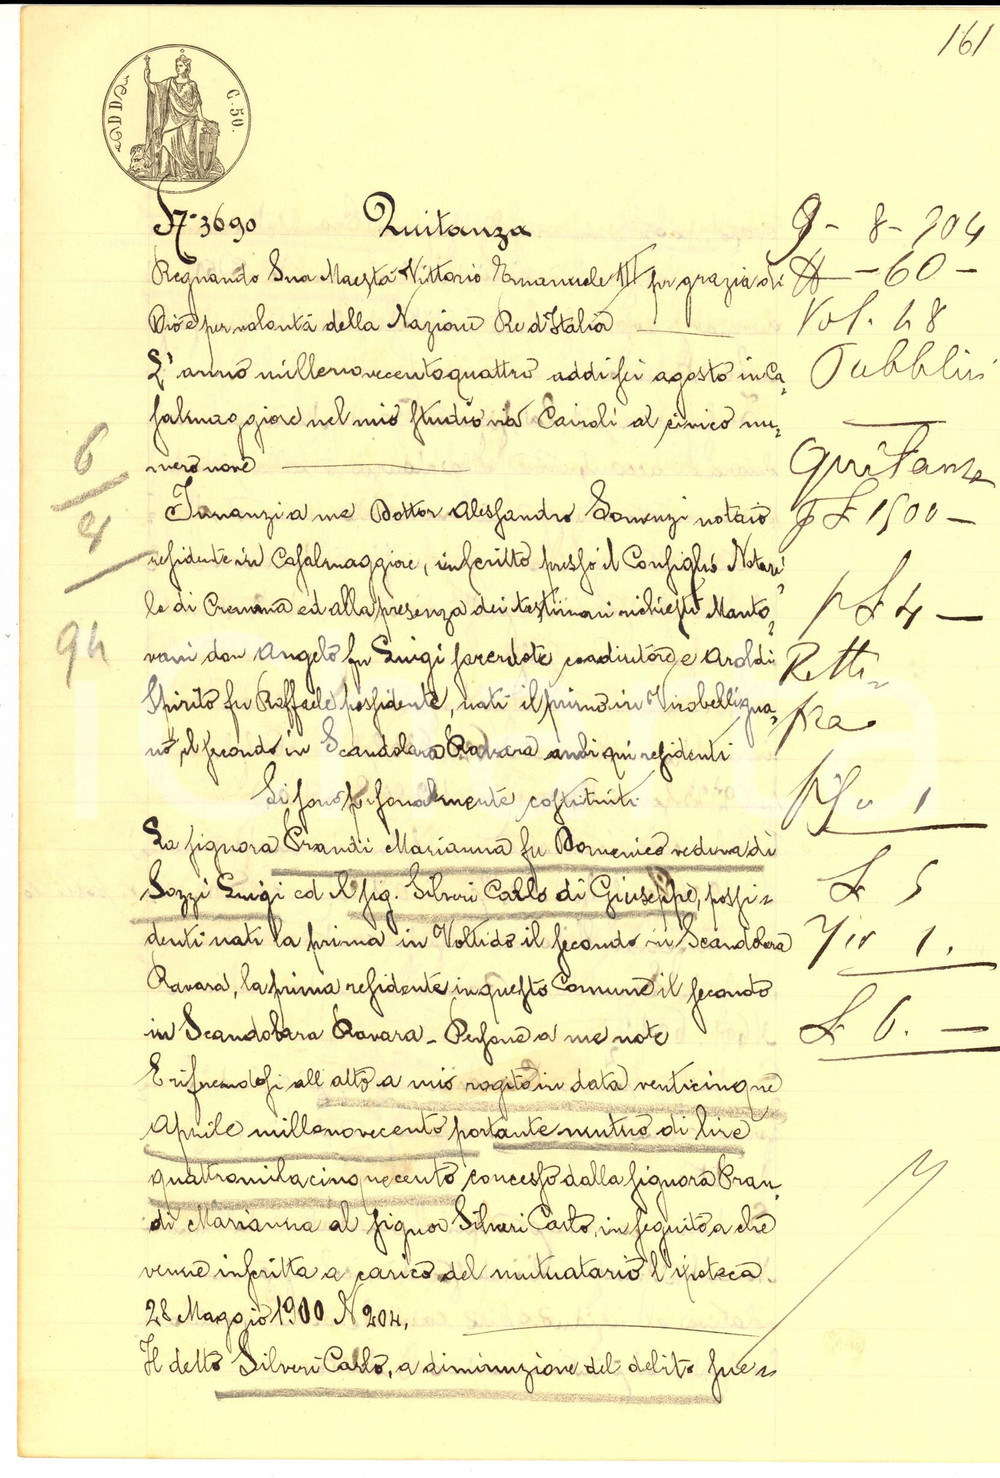 161
C. 50.
N° 3690 Quitanza
Regnando Sua Maestà Vittorio Emanuele III per grazia di
Dio e per volontà della Nazione Re d'Italia
L'anno millenovecentoquattro addì sei agosto in Ca=
salmaggiore nel mio studio via Cairoli al civico nu=
mero nove
Innanzi a me Dottor Alessandro Somenzi notaio
residente in Casalmaggiore, inscritto presso il Consiglio Notari=
le di Cremona ed alla presenza dei testimoni richiesti Manto=
vani don Angelo fu Luigi sacerdote coadiutore e Aroldi
Spirito fu Raffaele possidente, nati il primo in Vicobelligna=
no, il secondo in Scandolara Ravara ambi qui residenti
Si sono personalmente costituiti
La signora Prandi Marianna fu Domenico vedova di
Sozzi Luigi ed il sig. Silveri Carlo di Giuseppe, possi=
denti nati la prima in Voltido il secondo in Scandolara
Ravara, la prima residente in questo Comune il secondo
in Scandolara Ravara - Persone a me note
E riferendosi all'atto a mio rogito in data venticinque
Aprile millenovecento portante mutuo di lire
quattromilacinquecento concesso dalla signora Pran=
di Marianna al signor Silveri Carlo, in seguito a che
venne inscritta a carico del mutuatario l'ipoteca
28 Maggio 1900 N 204,
Il detto Silveri Carlo, a diminuzione del debito sue=
9 - 8 - 904
- 60 -
Vol. 48
Pubblici
Quitanza
p £ 1500 -
p £ 4 -
Retti=
fica
1
£ 5
1.
£ 6. -
6
4
94